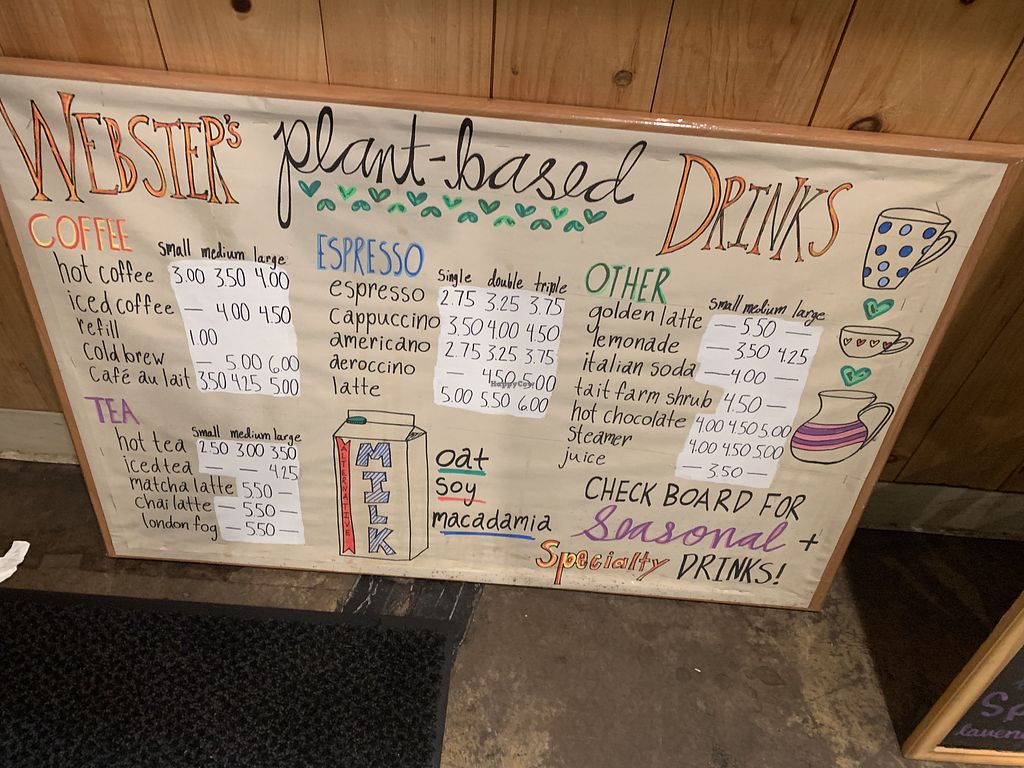 WEBSTER'S plant-based DRINKS
COFFEE
small medium large
hot coffee 3.00 3.50 4.00
iced coffee — 4.00 4.50
refill 1.00
cold brew — 5.00 6.00
Café au lait 3.50 4.25 5.00
TEA
small medium large
hot tea 2.50 3.00 3.50
iced tea — — 4.25
matcha latte 5.50 —
chai latte — 5.50 —
london fog — 5.50 —
ESPRESSO
single double triple
espresso 2.75 3.25 3.75
cappuccino 3.50 4.00 4.50
americano 2.75 3.25 3.75
aeroccino — 4.50 5.00
latte 5.00 5.50 6.00
HappyCow
ALTERNATIVE
MILK
oat
soy
macadamia
OTHER
small medium large
golden latte — 5.50 —
lemonade — 3.50 4.25
italian soda — 4.00 —
tait farm shrub 4.50 —
hot chocolate 4.00 4.50 5.00
Steamer 4.00 4.50 5.00
juice — 3.50 —
CHECK BOARD FOR
Seasonal +
Specialty DRINKS!